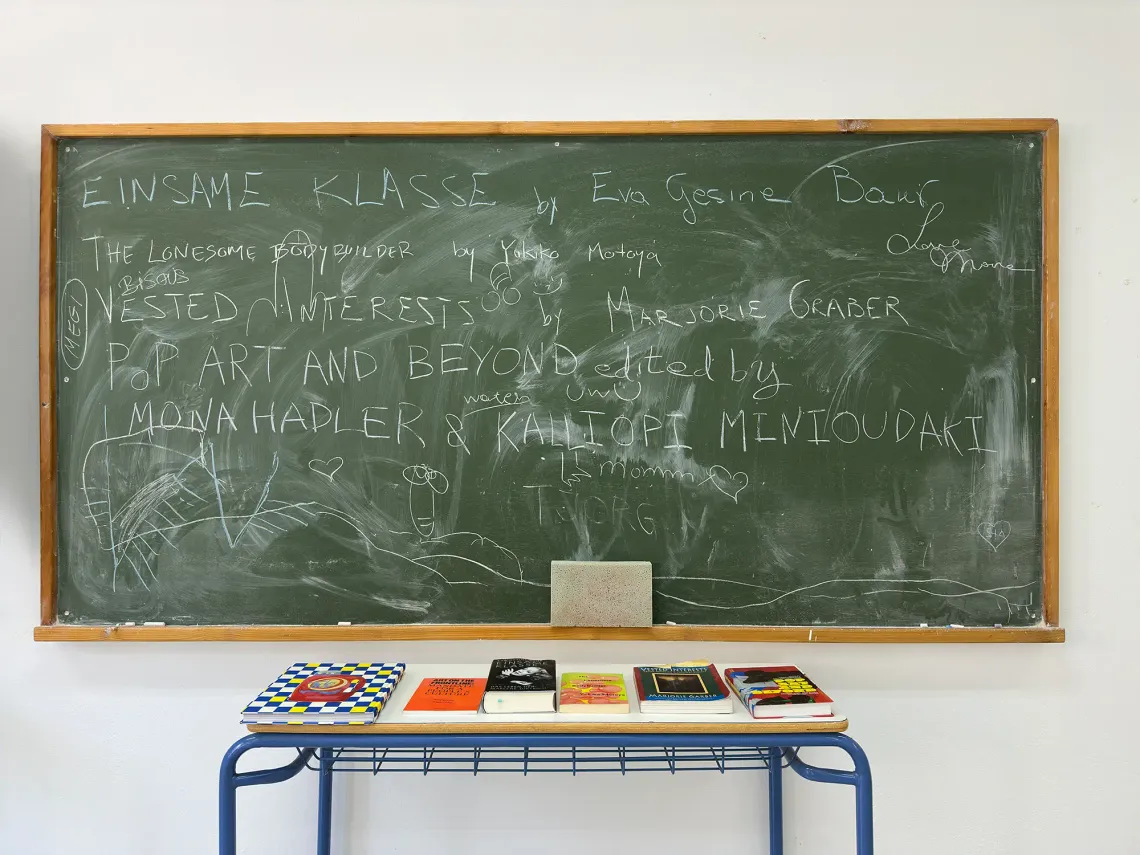 EINSAME KLASSE by Eva Gesine Baur
Love
THE LONESOME BODYBUILDER by Yukiko Motoya
BISOUS
MEGI
VESTED INTERESTS by MARJORIE GRABER
POP ART AND BEYOND edited by
UWU
MONA HADLER & KALLIOPI MINIOUDAKI
ART ON THE
FRONTLINE
EINSAME
VESTED INTERESTS
MARJORIE GARBER